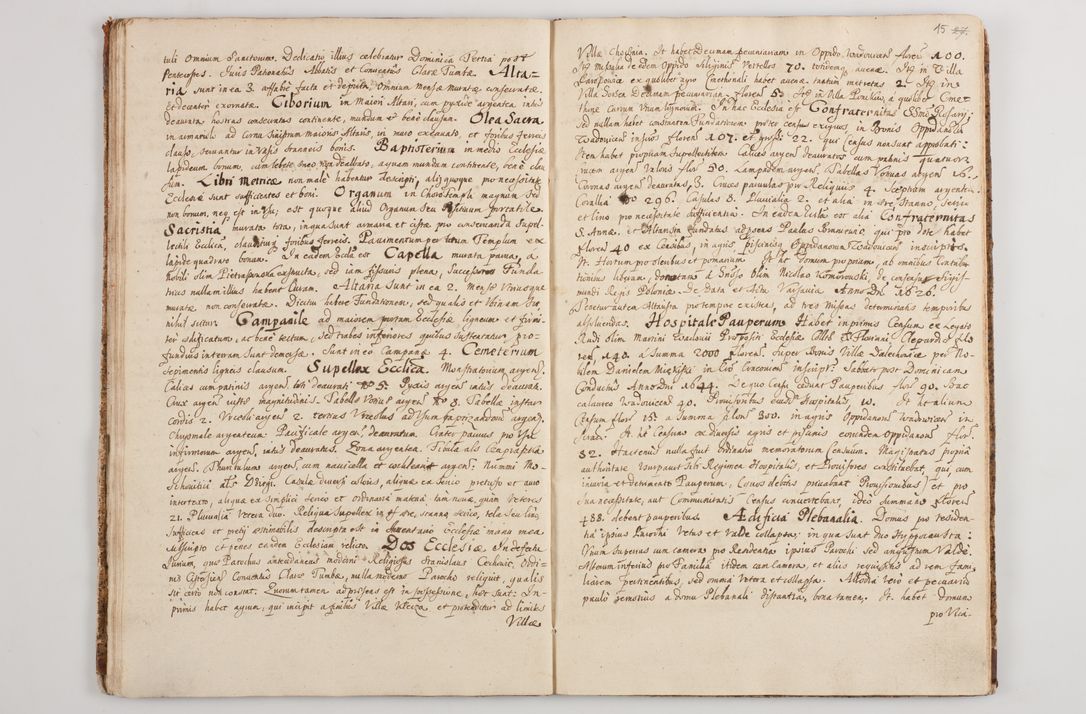 tuli Omnium Sanctorum. Dedicatio illius celebratur Dominica Tertia post
Pentecostes. Juris Patronatus Abbatis et Conventus Claræ Tumbæ. Alta=
ria sunt in ea 3. affabre facta et depicta, Omnium Mensæ Muratæ consecratæ.
et decenter exornatæ. Ciborium in Maiori Altari, cum pyxide argentea intus
deaurata hostias consecratas continente, mundum et bene clausum. Olea Sacra
in armariolo ad Cornu sinistrum maioris Altaris, in muro excavato, et foribus ferreis
clauso, servantur in Vasis stanneis bonis. Baptisterium in medio Ecclesiæ
lapideum bonum, cum lebete æneo non dealbato, aquam mundam continente, bene clau
sum. Libri Metricæ non male habentur descripti, alijs quoque pro necessitate
Ecclesiæ sunt sufficientes et boni. Organum in Choro Templi magnum sed
non bonum, neq; est in Usu; est quoque aliud Organum seu Positivum portatile.
Sacristia murata tota, in qua sunt armaria et cistæ pro conservanda Supel=
lectili Ecclica, clauditur foribus ferreis. Pavimentum per totum Templum ex
lapide quadrato bonum. In eadem Eccla est Capella murata parva, a
nobili olim Pietraszowska extructa, sed iam fissuris plena, Successores Funda
tricis nullam illius habent Curam. Altaria sunt in ea 2. Mensæ Utriusque
muratæ, non consecratæ. Dicitur habere Fundationem, sed qualis et Ubinam sit
nihil scitur. Campanile ad maiorem portam Ecclesiæ ligneum et firmi=
ter ædificatum, ac bene tectum, sed trabes inferiores quibus sustentatur pro=
fundius in terram sunt demersæ. Sunt in eo Campanæ 4. Cemeterium
sepimentis ligneis clausum. Supellex Ecclica. Monstratorium argen:
Calices cum patinis argen: toti deaurati No 5. Pyxis argen: intus deaurata.
Crux argen: iustæ magnitudinis. Tabellæ Votivæ argen: No 8. Tabellæ instar
Cordis 2. Urceoli argen: 2. tertius Urceolus ad Usum baptizandorum argen:
Chrysmale argenteum. Pacificale argen: deauratum. Crater parvus pro Usu
infirmorum argen: intus deauratus. Zona argentea. Fibula als Canpra pasa
argen: Thuribulum argen: cum navicella et cochleari argen: Nummi Mo=
schovitici als Dziegi. Casulæ diversi coloris, aliquæ ex Serico pretioso et auro
intertexto, aliquæ ex simplici Serico et Ordinaria materia tam novæ, quam Veteres
21. Pluvialia Vetera duo. Reliqua Supellex in ære, stanno, serico, tela seu lino,
sufficiens et pretij æstimabilis descripta est in Inventario Ecclesiæ manu mea
subscripto et penes eandem Ecclesiam relicto. Dos Ecclesiæ. In defectu
Jurium, quæ Parochus antecedaneus moderni Religiosus Stanislaus Cechowic, Ordi=
nis Cistersien: Conventus Claræ Tumbæ, nulla moderno Parocho reliquit, qualis
sit certo non constat. Quorum tamen ad præsens est in possessione, hæc sunt: In=
primis habet agrum, qui incipit a finibus Villæ Klecza, et protenditur ad limites
Villæ
15 27.
Villæ Chocznia. It habet Decimam pecuniariam in Oppido Wadowicen: flor: 100.
It Missalia de eodem Oppido Siliginis Vertellos 70. totidem avenæ. It in Villa
Zareponia ex quolibet agro Cmethonali habet avenæ tantum metretas 2. It in
Villa Gorzen Decimam pecuniariam Floren: 50. It in Villa Ponikiew, a quolibet Cme=
thone Currum Unum lignorum. In hac Ecclesia est Confraternitas SSmi Rosarij,
sed nullam habet constantem Fundationem præter census exiguos, in Bonis Oppidaneis
Wadowicen: inscr: florenos 107. et grossos 22. qui Census non sunt approbati:
Item habet propriam Supellectilem: Calices argen: deauratos cum patinis quatuor
crucem argen: Valoris flor: 50. Lampadem argen: Tabellas Votivas argen: 16.
Coronas argen: deauratas 3. Cruces parvulas pro Reliquiis 4. Sceptrum argenteum
Corallia No 296. Casulas 8. Pluvialia 2. et alia in ære, stanno, serico
et lino pro necessitate sufficientia. In eadem Eccla est alia Confraternitas
S. Annæ, et Altarista fundatus ad præsens Paulus Bonavrio, qui pro dote habet
florenos 40 ex Censibus, in agris, piscinisq; Oppidanorum Wadowicen: inscriptos.
It Hortum pro oleribus et pomarium. It hc Domum propriam, ab omnibus Contribu
tionibus liberam, donatam a Gnoso olim Nicolao Komorowski, de consensu Sigis=
mundi Regis Poloniæ. De Data et Acta Varsaviæ Anno Dni 1626.
Tenetur autem Altarista pro tempore existens, ad tres Missas determinatis temporibus
absolvendas. Hospitale Pauperum. Habet inprimis Censum ex Legato
Rndi olim Martini Wadowii Præpositi Ecclesiæ Collæ S. Floriani Clepardiæ Flo
renos 140. a Summa 2000 florenorum, Super Bonis Villæ Dalechowice per No=
bilem Danielem in C[ast]ro Cracovien: inscript: Sabbato post Dominicam
Conductus Anno Dni 1644. De quo Censu cedunt Pauperibus flor: 90. Bac=
calaureo Wadovicen: 40. Provisoribus eiusd: Hospitalis, 10. It hc alium
Censum flor: 15. a summa flor: 300. in agris Oppidanorum Wadovicen: in
script: It hc Censum ex diversis agris et piscinis eorundem Oppidanorum flor:
82. Hactenus nulla fuit Ordinatio memoratorum Censuum. Magistratus propria
authoritate Usurpavit sibi Regimen Hospitalis, et Provisores constituebat, qui, cum
iniuria et detrimento Pauperum, (: quos debitis privabant Provisionibus :) et pro
sua necessitate, aut Communitatis Census convertebant, ideo summam florenorum
488. debent pauperibus. Ædificia Plebanalia. Domus pro residen
tia ipsius Parochi Vetus et Valde collapsa, in qua sunt duo Hypocausta:
Unum Superius cum camera pro Residentia ipsius Parochi sed angustum Valde.
Alterum inferius pro Familia itidem cum Camera, et aliis requisitis ad rem fami
liarem pertinentibus, sed omnia Vetera et collapsa. Allodia vero et pecuaria
paulo remotius a domo Plebanali distantia, bona tamen. It habet domum
pro Vica